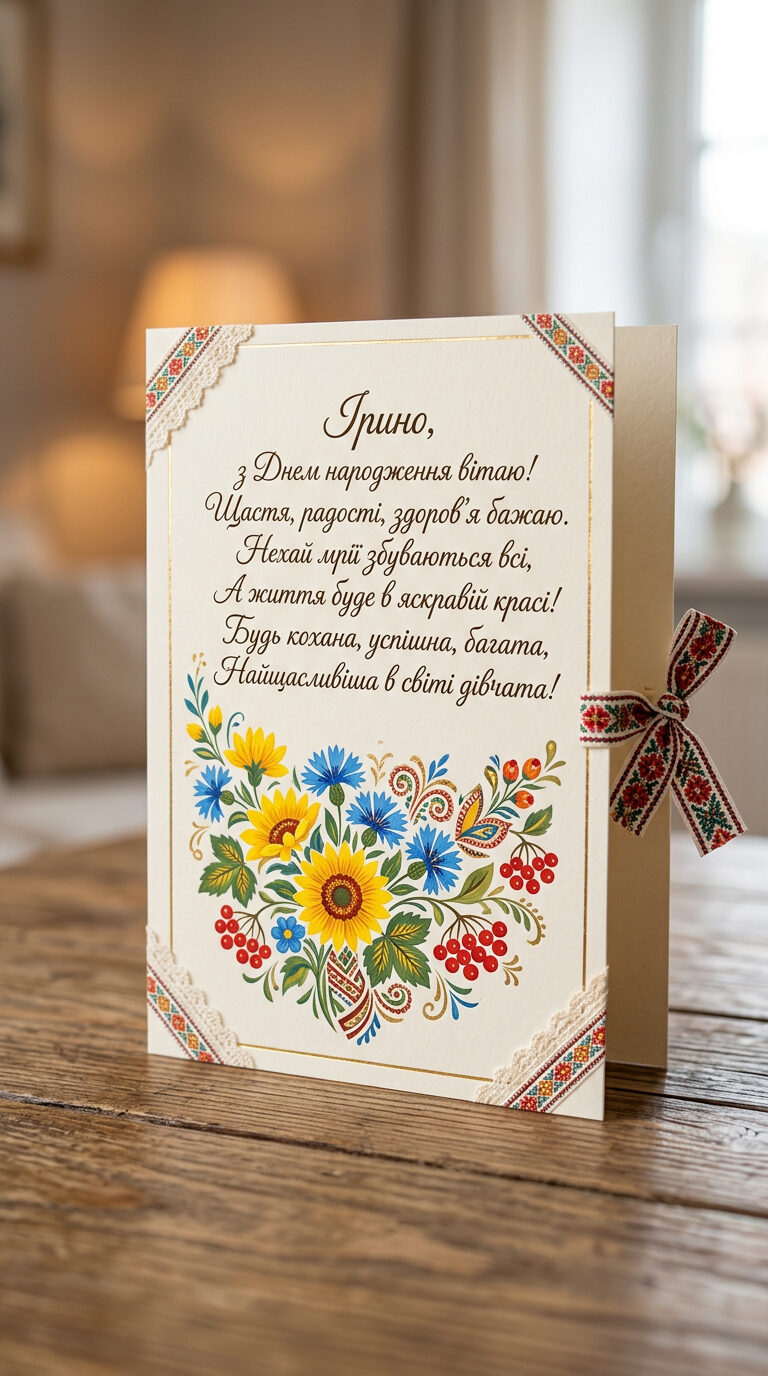 Ірино,
з Днем народження вітаю!
Щастя, радості, здоров'я бажаю.
Нехай мрії збуваються всі,
А життя буде в яскравій красі!
Будь кохана, успішна, багата,
Найщасливіша в світі дівчата!